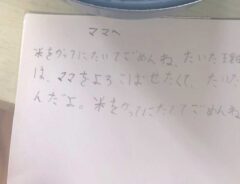 ママへ
米をかってにたいてごめんね、たいた理由
は、ママをよろこばせたくて、たいた
んだよ。米をかってにたいてごめんね